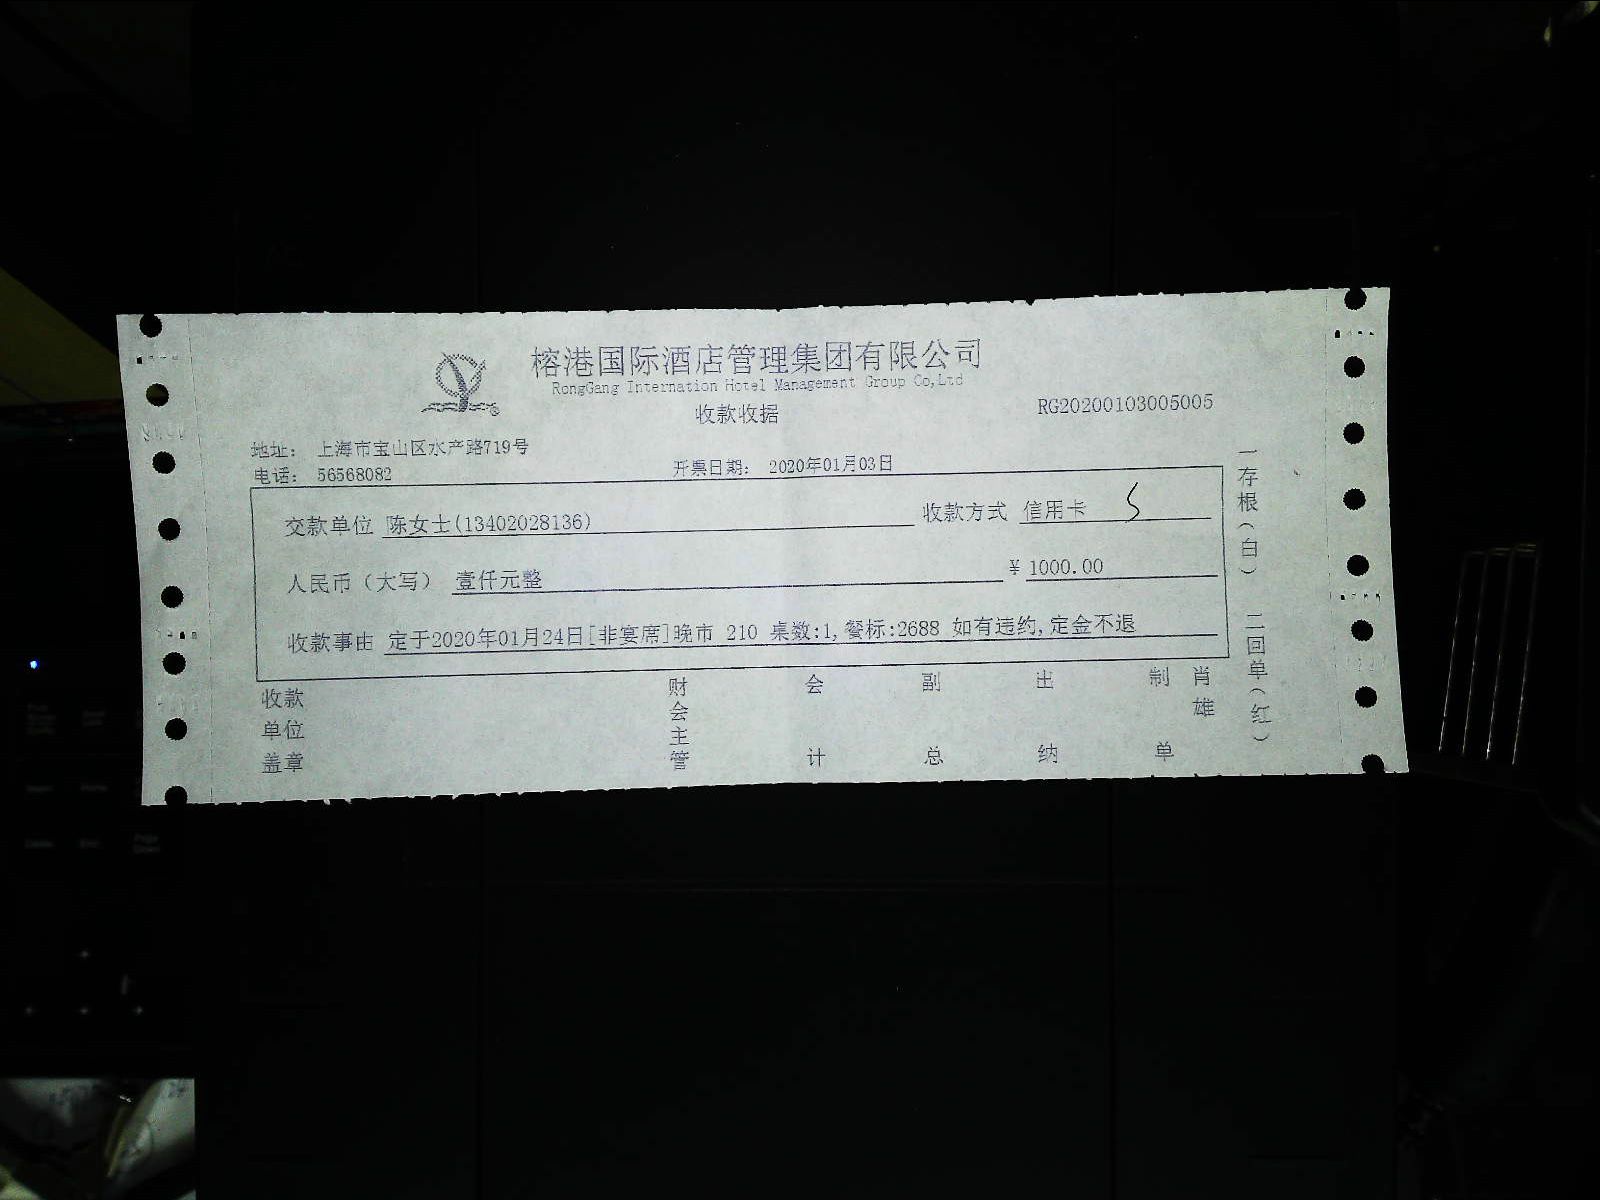 榕港国际酒店管理集团有限公司
RongGang Internation Hotel Management Group Co,Ltd
收款收据
RG20200103005005
地址： 上海市宝山区水产路719号
电话： 56568082
开票日期： 2020年01月03日
交款单位 陈女士(13402028136) 收款方式 信用卡
人民币（大写） 壹仟元整 ¥ 1000.00
收款事由 定于2020年01月24日[非宴席]晚市 210 桌数:1,餐标:2688 如有违约,定金不退
收款单位盖章 财会主管 会计 副总 出纳 制单 肖雄
一存根（白） 二回单（红）